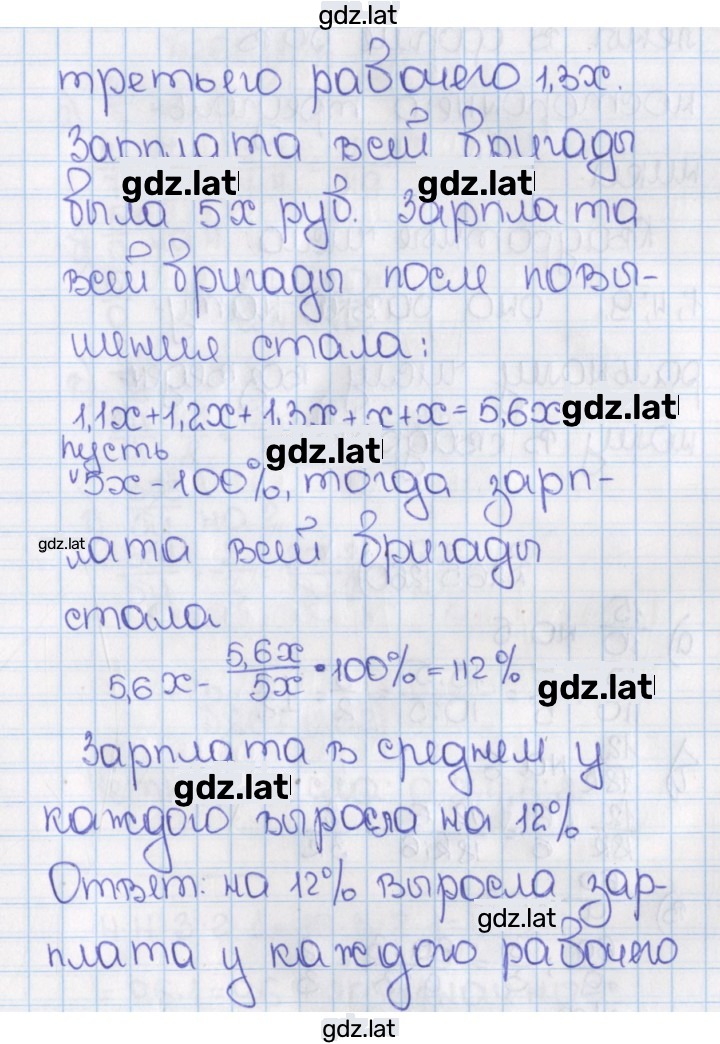 gdz.lat
третьего рабочего 1,3x.
Зарплата всей бригады
gdz.lat gdz.lat
была 5x руб. Зарплата
всей бригады после повы-
шения стала:
1,1x+1,2x+1,3x+x+x=5,6x gdz.lat
пусть gdz.lat
5x-100%, тогда зарп-
gdz.lat лата всей бригады
стала
5,6x - 5,6x/5x • 100% = 112% gdz.lat
Зарплата в среднем у
gdz.lat
каждого выросла на 12%
Ответ: на 12% выросла зар-
gdz.lat
плата у каждого рабочего
gdz.lat